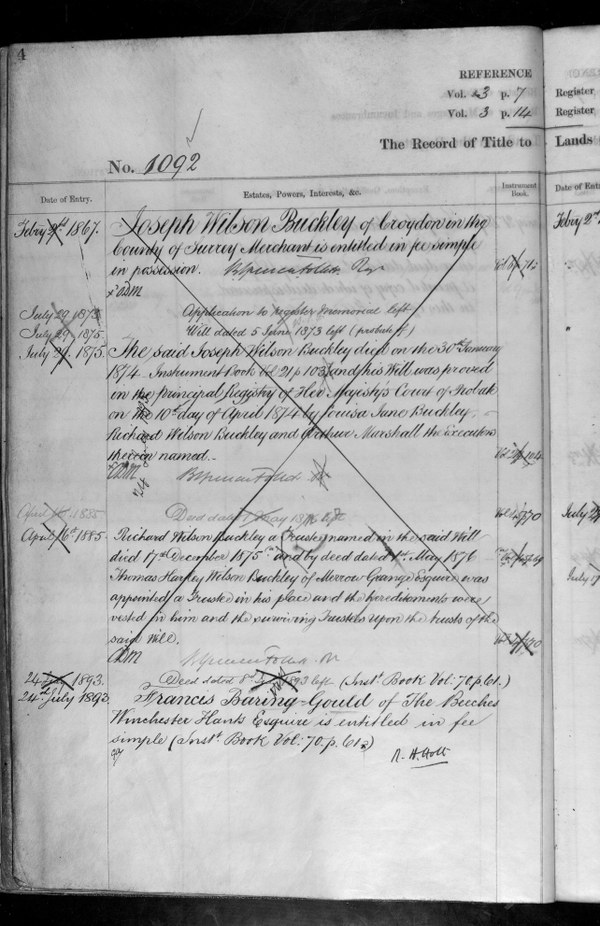 4
REFERENCE
Vol. 3 p. 7
Vol. 3 p. 14
Register
Register
The Record of Title to
Lands
No. 1092
Date of Entry.
Estates, Powers, Interests, &c.
Instrument Book.
Date of Ent
Febry 1867.
Joseph Wilson Buckley of Croydon in the
County of Surrey Merchant is entitled in fee simple
in possession.
Febry 2nd
July 29 1875
Application to register memorial left
July 29 1875.
Will dated 5 June 1873 left (probate of)
July 29. 1875.
The said Joseph Wilson Buckley died on the 30th January
1874. Instrument Book Vol 21 p 103 and his Will was proved
in the principal Registry of Her Majesty's Court of Probate
on the 10th day of April 1874 by Louisa Jane Buckley,
Richard Wilson Buckley and Arthur Marshall the Executors
therein named.
April 1885
Deed dated May left
April 16th 1885
Richard Wilson Buckley a Trustee named in the said Will
died 17th December 1875 and by deed dated 1st May 1876
Thomas Hartley Wilson Buckley of Merrow Grange Esquire was
appointed a Trustee in his place and the hereditaments were
vested in him and the surviving Trustees upon the trusts of the
said Will.
24 July 1893.
Deed dated 8th 1893 left (Inst. Book Vol: 70. p. 61.)
24th July 1893.
Francis Baring-Gould of The Beeches
Winchester Hants Esquire is entitled in fee
simple (Inst. Book Vol: 70. p. 61.)
R. H. Holt